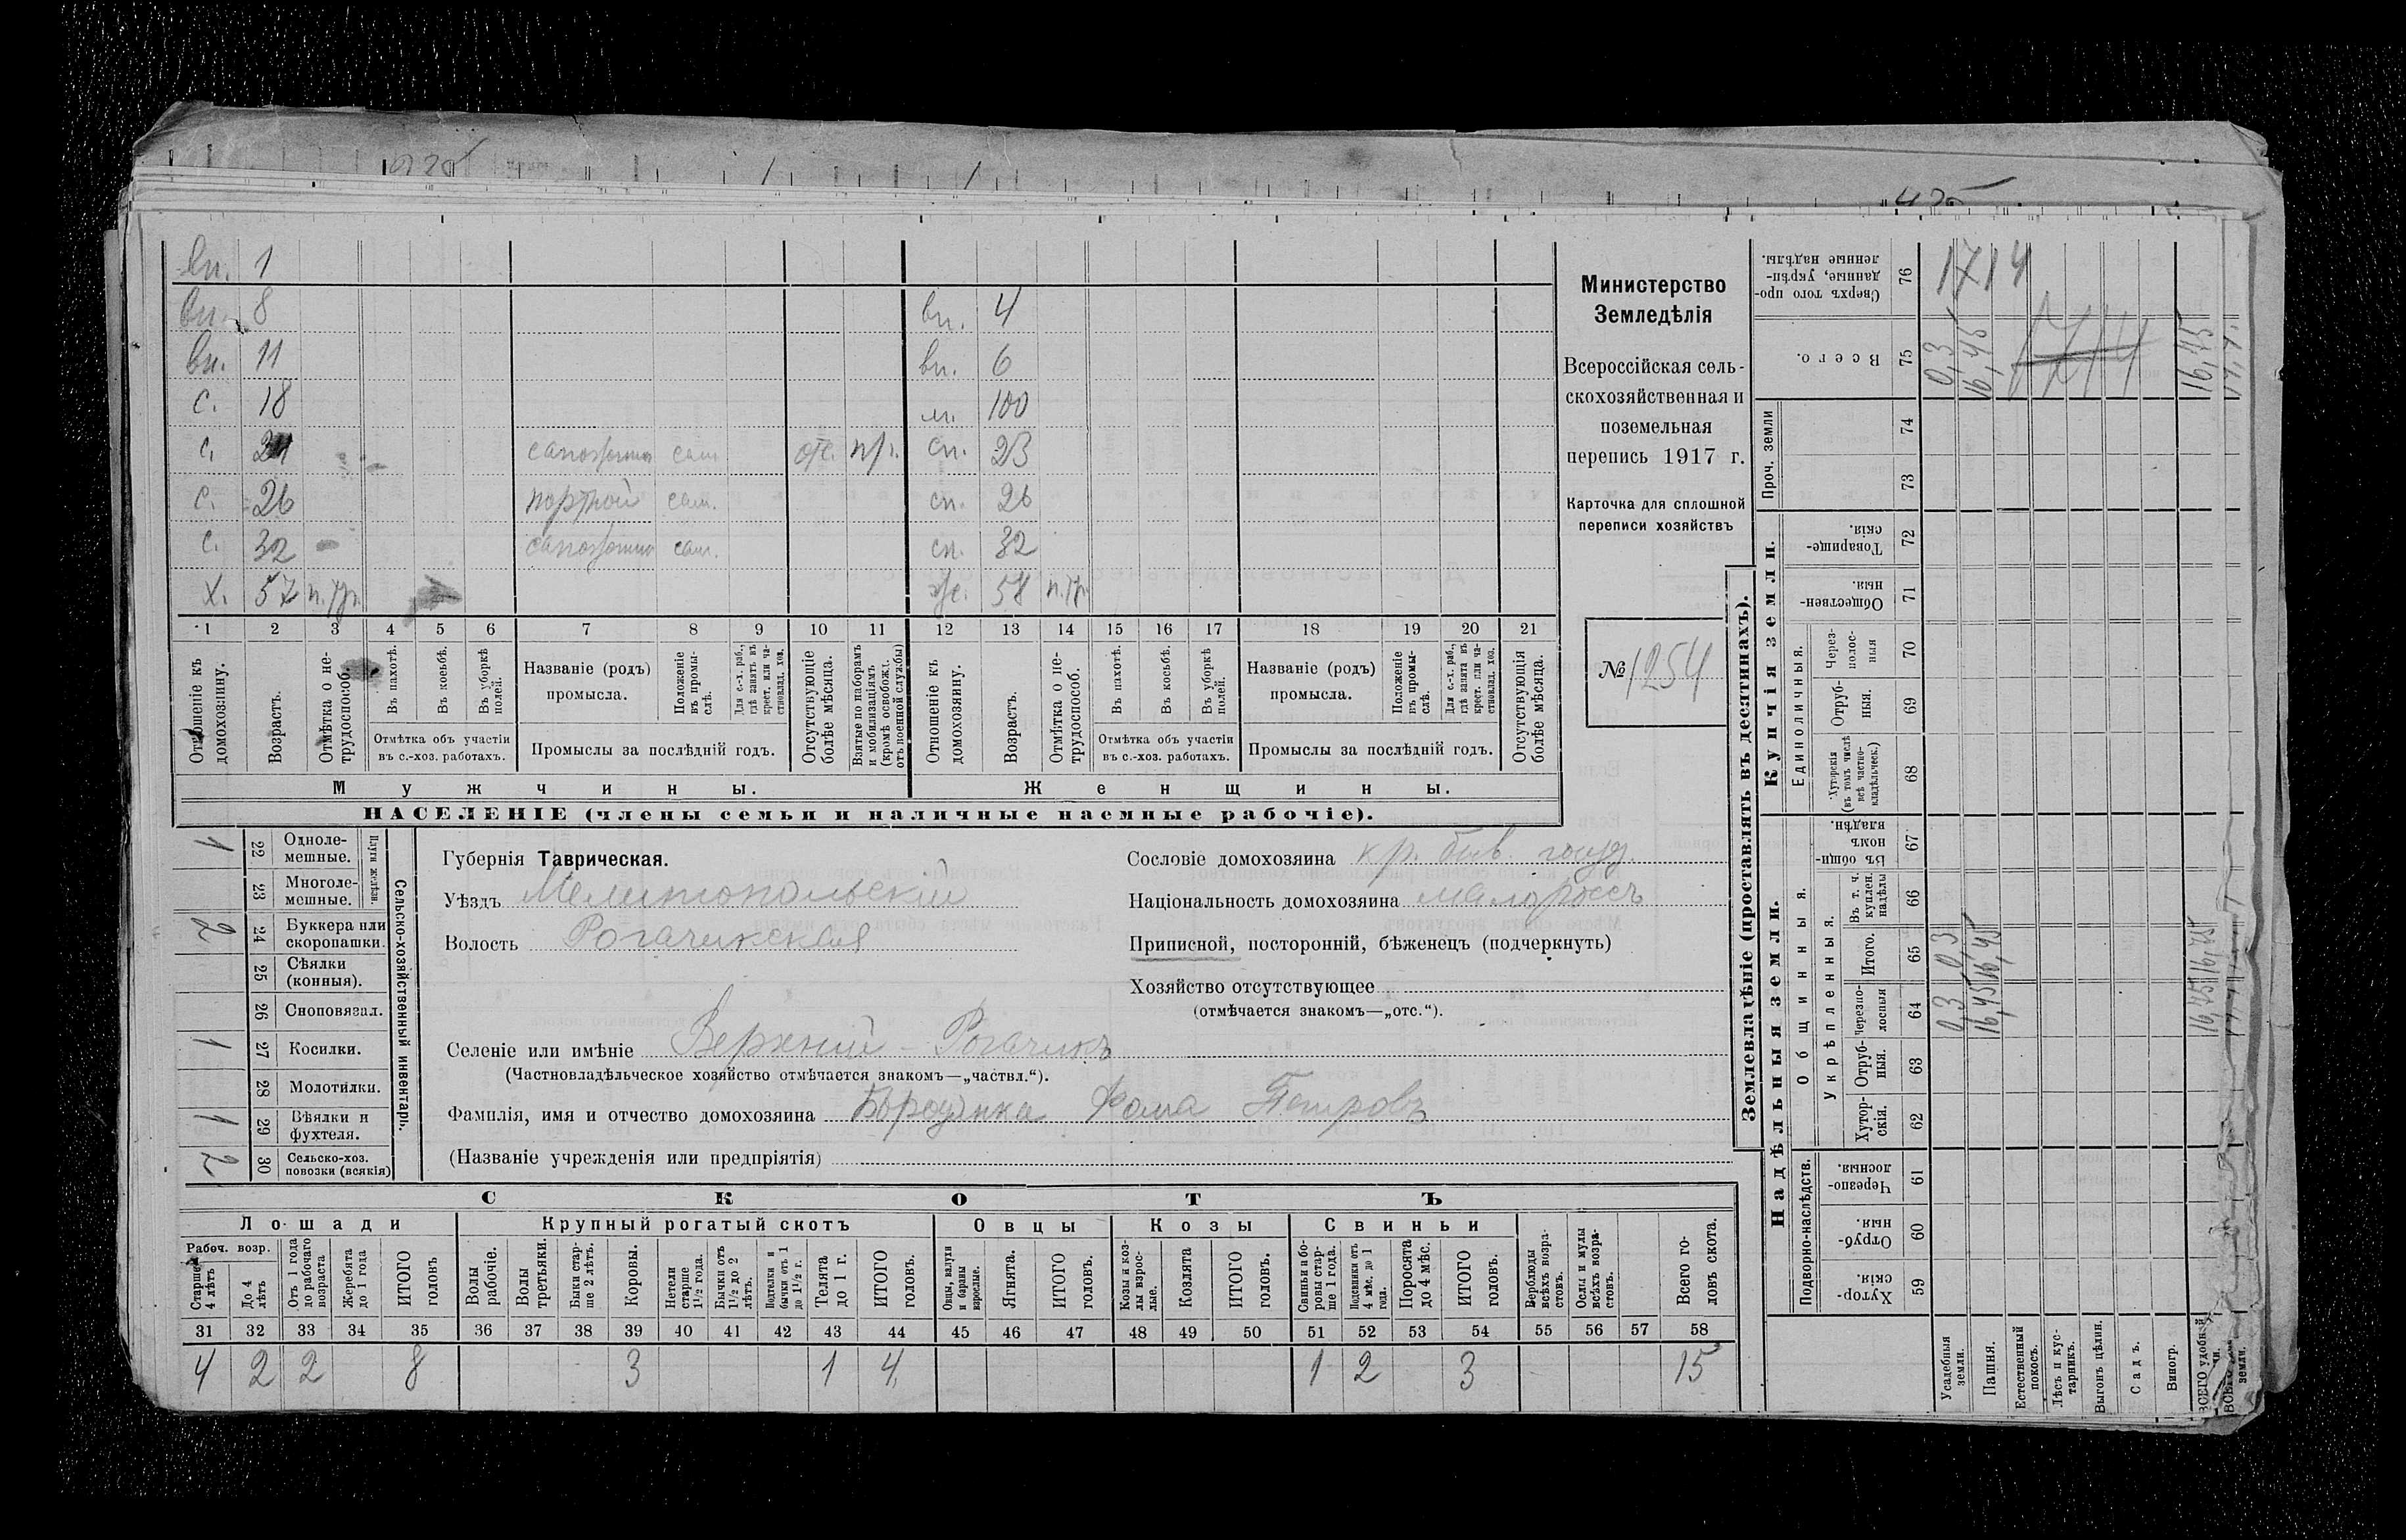 925
425
вн. 1
вн. 8 вн. 4
вн. 11 вн. 6
с. 18 м. 100
с. 21 сапожник сам. отс. пр. сн. 23
с. 26 портной сам. сн. 26
с. 32 сапожник сам. сн. 32
х. 57 п.тр. же. 58 п.тр.
1 2 3 4 5 6 7 8 9 10 11 12 13 14 15 16 17 18 19 20 21
Отношеніе къ домохозяину.
Возрастъ.
Отмѣтка о не-трудоспособ.
Въ пахотѣ.
Въ косьбѣ.
Въ уборкѣ полей.
Отмѣтка объ участіи
въ с.-хоз. работахъ.
Названіе (родъ)
промысла.
Положеніе въ промы-слѣ.
Для с.-х. раб., гдѣ занятъ въ крест. или ча-стновлад. хоз.
Промыслы за послѣдній годъ.
Отсутствующіе болѣе мѣсяца.
Взятые по наборамъ и мобилизаціямъ (кромѣ освобожд. отъ военной службы)
Отношеніе къ домохозяину.
Возрастъ.
Отмѣтка о не-трудоспособ.
Въ пахотѣ.
Въ косьбѣ.
Въ уборкѣ полей.
Отмѣтка объ участіи
въ с.-хоз. работахъ.
Названіе (родъ)
промысла.
Положеніе въ промы-слѣ.
Для с.-х. раб., гдѣ занята въ крест. или ча-стновлад. хоз.
Промыслы за послѣдній годъ.
Отсутствующія болѣе мѣсяца.
Мужчины. Женщины.
НАСЕЛЕНІЕ (члены семьи и наличные наемные рабочіе).
Министерство
Земледѣлія
Всероссійская сель-
скохозяйственная и
поземельная
перепись 1917 г.
Карточка для сплошной
переписи хозяйствъ
№ 1254
1 22 Одноле-мешные.
23 Многоле-мешные.
Плуги желѣзн.
2 24 Буккера или скоропашки.
25 Сѣялки (конныя).
26 Сноповязал.
1 27 Косилки.
28 Молотилки.
1 29 Вѣялки и фухтеля.
2 30 Сельско-хоз. повозки (всякія)
Сельско-хозяйственный инвентарь.
Губернія Таврическая.
Уѣздъ Мелитопольскій
Волость Рогачикская
Сословіе домохозяина кр. быв. госуд.
Національность домохозяина малороссъ
Приписной, посторонній, бѣженецъ (подчеркнуть)
Хозяйство отсутствующее
(отмѣчается знакомъ—„отс.“).
Селеніе или имѣніе Верхній-Рогачикъ
(Частновладѣльческое хозяйство отмѣчается знакомъ—„частвл.“).
Фамилія, имя и отчество домохозяина Фома Петровъ
(Названіе учрежденія или предпріятія)
СКОТЪ
Лошади Крупный рогатый скотъ Овцы Козы Свиньи
Рабоч. возр.
Старше 4 лѣтъ
До 4 лѣтъ
Отъ 1 года до рабочаго возраста
Жеребята до 1 года
ИТОГО головъ
Волы рабочіе.
Волы третьяки.
Быки стар-ше 2 лѣтъ.
Коровы.
Нетели старше 1½ года.
Бычки отъ 1½ до 2 лѣтъ.
Подтелки и бычки отъ 1 до 1½ г.
Телята до 1 г.
ИТОГО головъ.
Овцы, валухи и бараны взрослые.
Ягнята.
ИТОГО головъ.
Козы и коз-лы взрос-лые.
Козлята
ИТОГО головъ.
Свиньи и бо-ровы стар-ше 1 года.
Подсвинки отъ 4 мѣс. до 1 года.
Поросята до 4 мѣс.
ИТОГО головъ.
Верблюды всѣхъ возра-стовъ.
Ослы и мулы всѣхъ возра-стовъ.
Всего го-ловъ скота.
31 32 33 34 35 36 37 38 39 40 41 42 43 44 45 46 47 48 49 50 51 52 53 54 55 56 57 58
4 2 2 8 3 1 4 1 2 3 15
Землевладѣніе (проставлять въ десятинахъ).
Надѣльныя земли. Купчія земли. Проч. земли
Подворно-наслѣдств. Общинныя. Единоличныя.
Укрѣпленныя.
Хутор-скія. 59
Отруб-ныя. 60
Черезпо-лосныя. 61
Хутор-скія. 62
Отруб-ныя. 63
Черезпо-лосныя 64
Итого. 65
Въ т. ч. куплен. надѣлы 66
Въ общи-номъ владѣн. 67
Хуторскія (въ томъ числѣ всѣ частно-владѣльческ.) 68
Отруб-ныя. 69
Через-полос-ныя 70
Обществен-ныя. 71
Товарище-скія. 72
73
74
Всего. 75
Сверхъ того про-данные, укрѣп-ленные надѣлы. 76
Усадебныя земли. 0,3 0,3 0,3
Пашня. 16,45 16,45 16,45
Естественный покосъ.
Лѣсъ и кус-тарникъ.
Выгонъ цѣлин.
Садъ.
Виногр.
ВСЕГО удобной 16,75 16,75
земли.
1714
1714